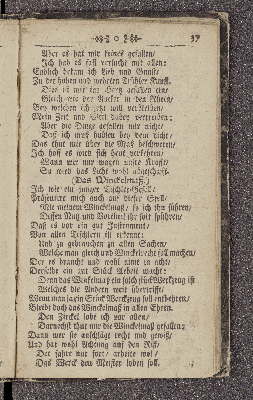 o 37
Aber es hat mir keines gefallen/
Ich hab es fast versucht mit allen:
Endlich bekam ich Lieb und Gunst/
Zu der hohen und wehrten Tischler Kunst.
Dies ist mir ins Hertz gefallen ein/
Gleich wie der Necker in den Rhein/
Bey welchem ich jetzt will verbleiben/
Mein Zeit und Weil dabey vertreiben;
Aber vor Dings gefallen mir nicht/
Daß ich muß hobeln bey dem Licht/
Das thut mir über die Maß beschweren/
Ich hoff es wird sich heut verkehren/
Wann wir nur wagen unsre Kunst/
So wird das Licht wohl abgeschafft.
(Das Winckelmaß.)
Ich bin ein junger Tischler-Gesell/
Präsentier mich auch auf dieser Stell/
Mit meinem Winckelmaß/ so ich thu führen/
Dessen Nutz und Vortheil ihr solt spühren/
Daß es vor ein gut Instrument/
Von allen Tischlern ist erkennt;
Und zu gebrauchen zu allen Sachen/
Welche man gleich und Winckelrecht soll machen/
Der es braucht und wohl nimt in acht
Derselbe ein gut Stück Arbeit macht:
Denn das Winckelmaß ein solch stück Werckzeug ist
Welches die Andern weit übertrifft/
Wenn man ja ein Stück Werckzeug soll entbehren/
Bleibt doch das Winckelmaß in allen Ehren.
Den Zirckel lobe ich vor allen/
Darnechst thut mir die Winckelmaß gefallen;
Dann wer sie anschlägt recht und gewiß/
Und hat wohl Achtung auf den Riß/
Der fahre nur fort/ arbeite wol/
Das Werck den Meister loben soll.